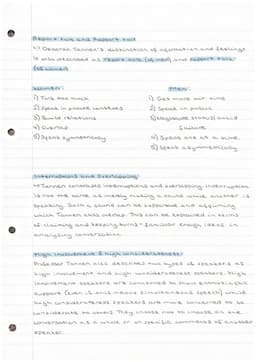 Report talk and Rapport talk
Deborah Tannen's distinction of information and feelings
is also described as report talk (of men) and rapport talk
(of women)
Women: Men:
1) Talk too much 1) Get more air time
2) Speak in private contexts 2) Speak in public
3) Build relations 3) Negotiate status/avoid
failure
4) Overlap 4) Speak one at a time
5) Speak symmetrically 5) Speak asymmetrically
Interruptions and Overlapping
Tannen contrasts interruptions and overlapping. Interruption
is not the same as merely making a sound while another is
speaking. Such a sound can be supportive and affirming
which Tannen calls overlap. This can be explained in terms
of claiming and keeping turns - familiar enough ideas in
analysing conversation.
High involvement & high considerateness:
Professor Tannen also described two types of speakers as
high involvement and high considerateness speakers. High
involvement speakers are concerned to show enthusiastic
support (even if this means simultaneous speech) while
high considerateness speakers are more concerned to be
considerate to others. They choose not to impose on the
conversation as a whole or on specific comments of another
speaker.